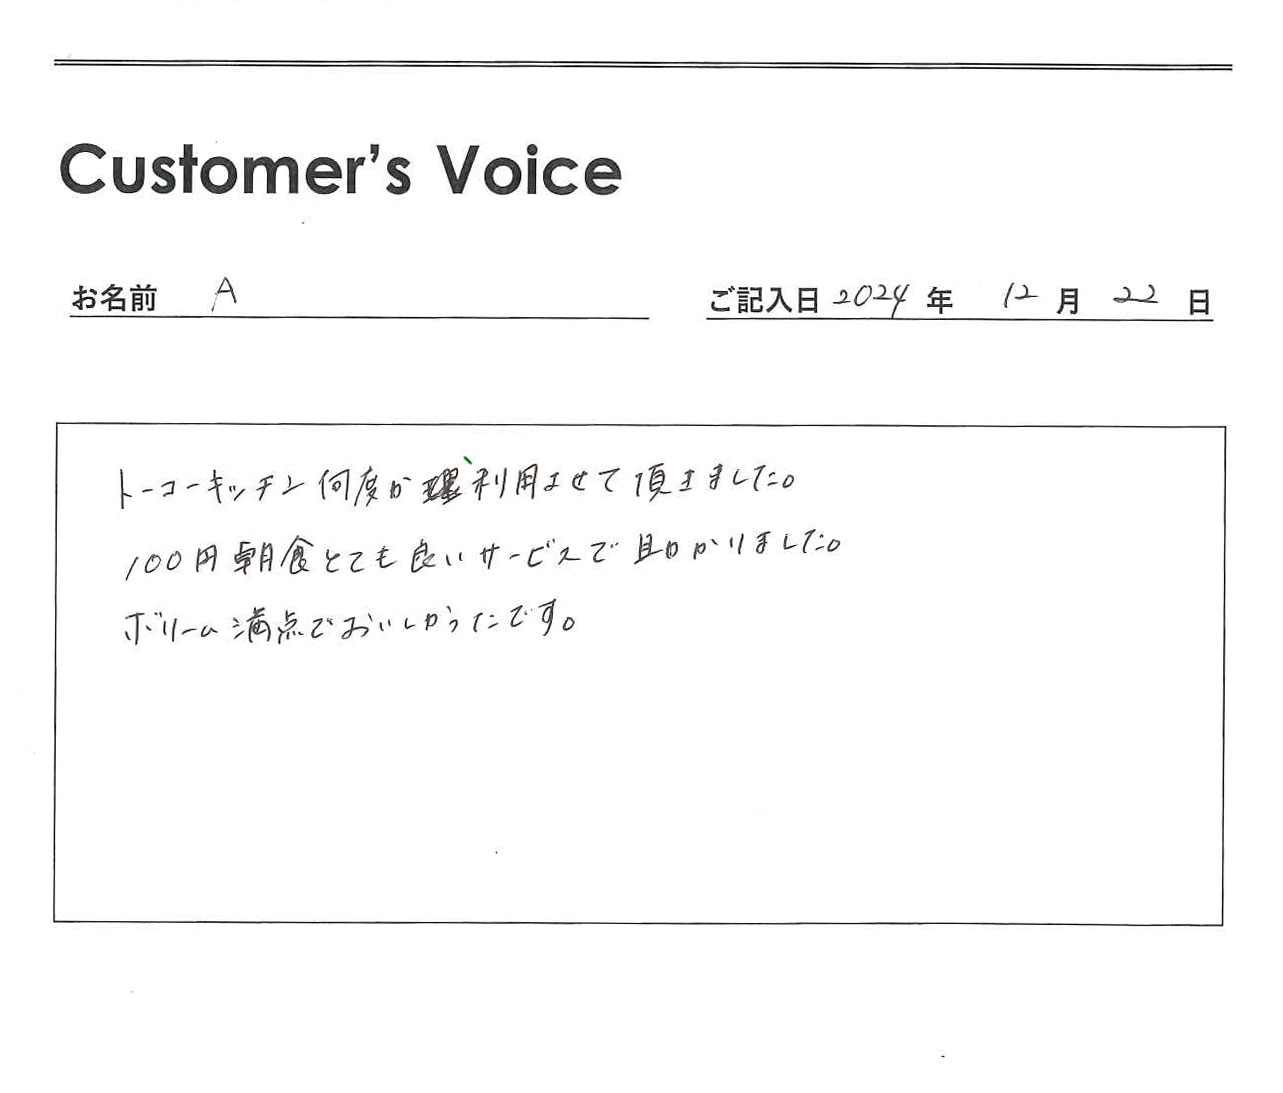 Customer's Voice
お名前 A
ご記入日 2024 年 12 月 22 日
トーコーキッチン何度か利用させて頂きました。
100円朝食とても良いサービスで助かりました。
ボリーム満点でおいしかったです。